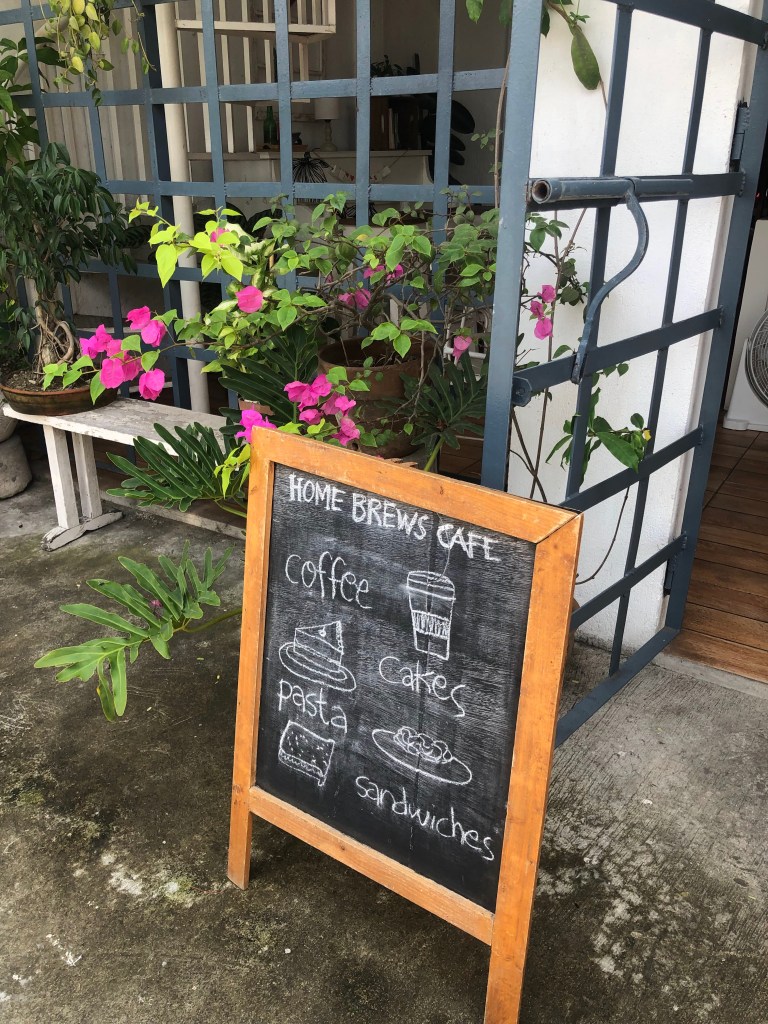 HOME BREWS CAFE
coffee
cakes
pasta
sandwiches